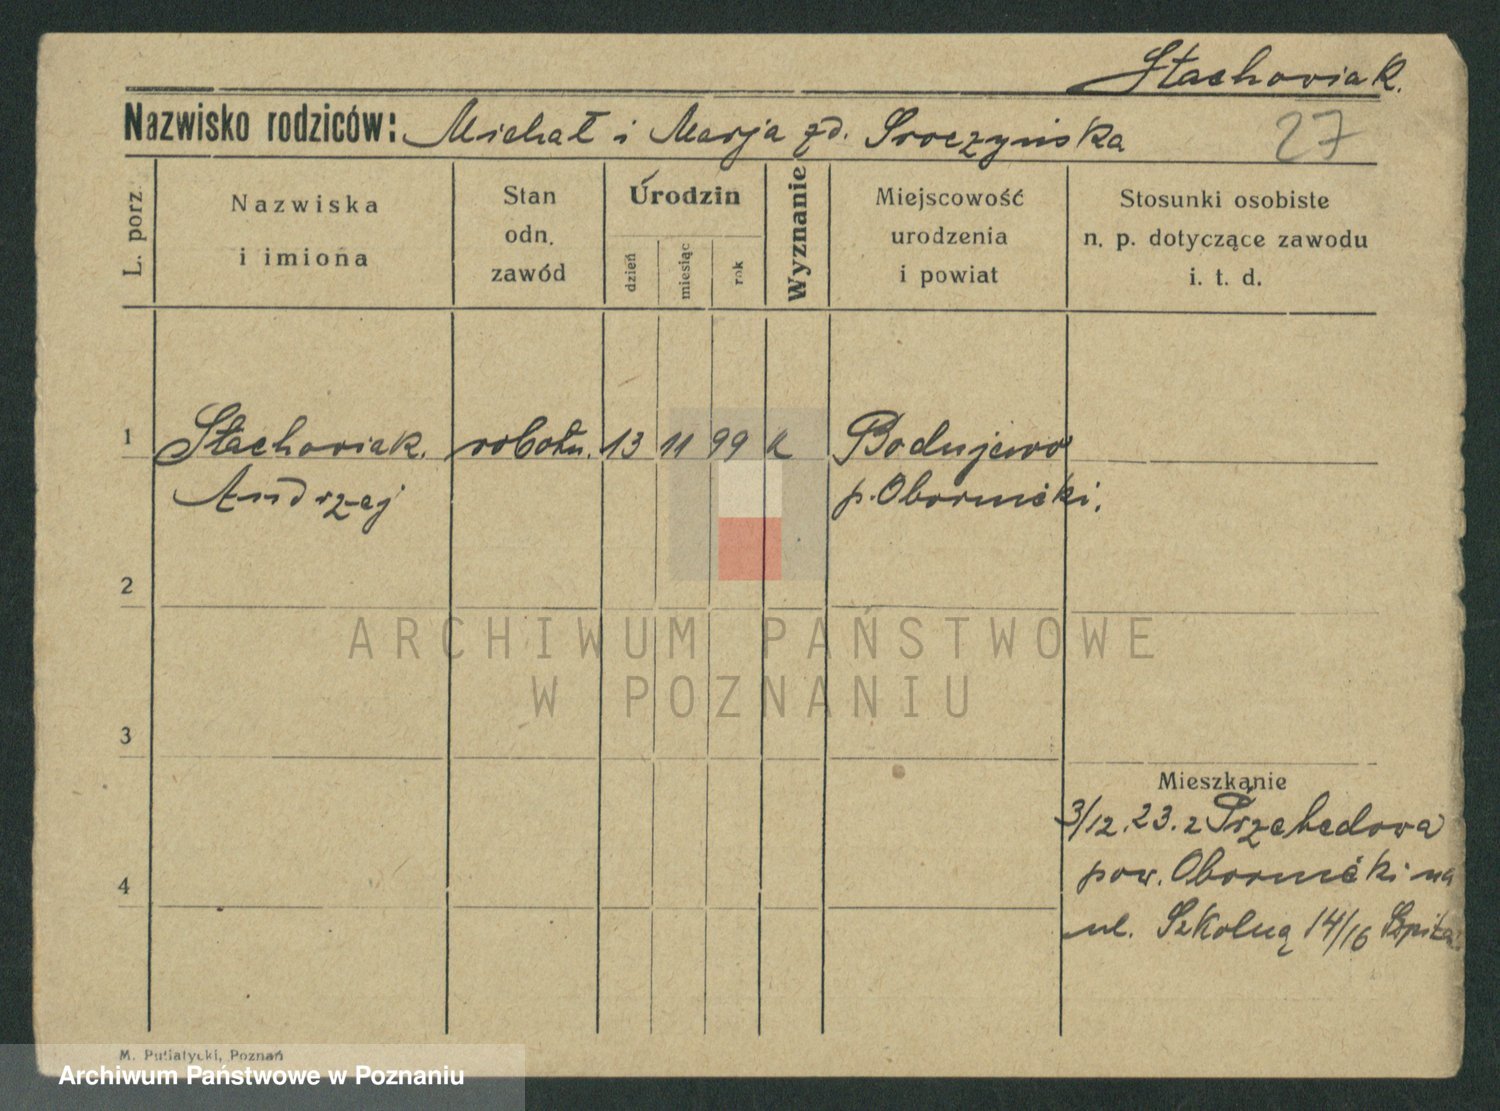 Stachowiak.
Nazwisko rodziców: Michał i Marja zd. Sroczyńska 27
L. porz.
Nazwiska
i imiona
Stan
odn.
zawód
Urodzin
dzień
miesiąc
rok
Wyznanie
Miejscowość
urodzenia
i powiat
Stosunki osobiste
n. p. dotyczące zawodu
i. t. d.
1 Stachowiak. robotn. 13 11 99 k Boduszewo
Andrzej p. Obornicki.
2
ARCHIWUM PAŃSTWOWE
W POZNANIU
3
Mieszkanie
3/12.23. z Przebędowa
4 pow. Obornicki na
ul. Szkolną 14/16 Szpital
M. Putiatycki, Poznań
Archiwum Państwowe w Poznaniu